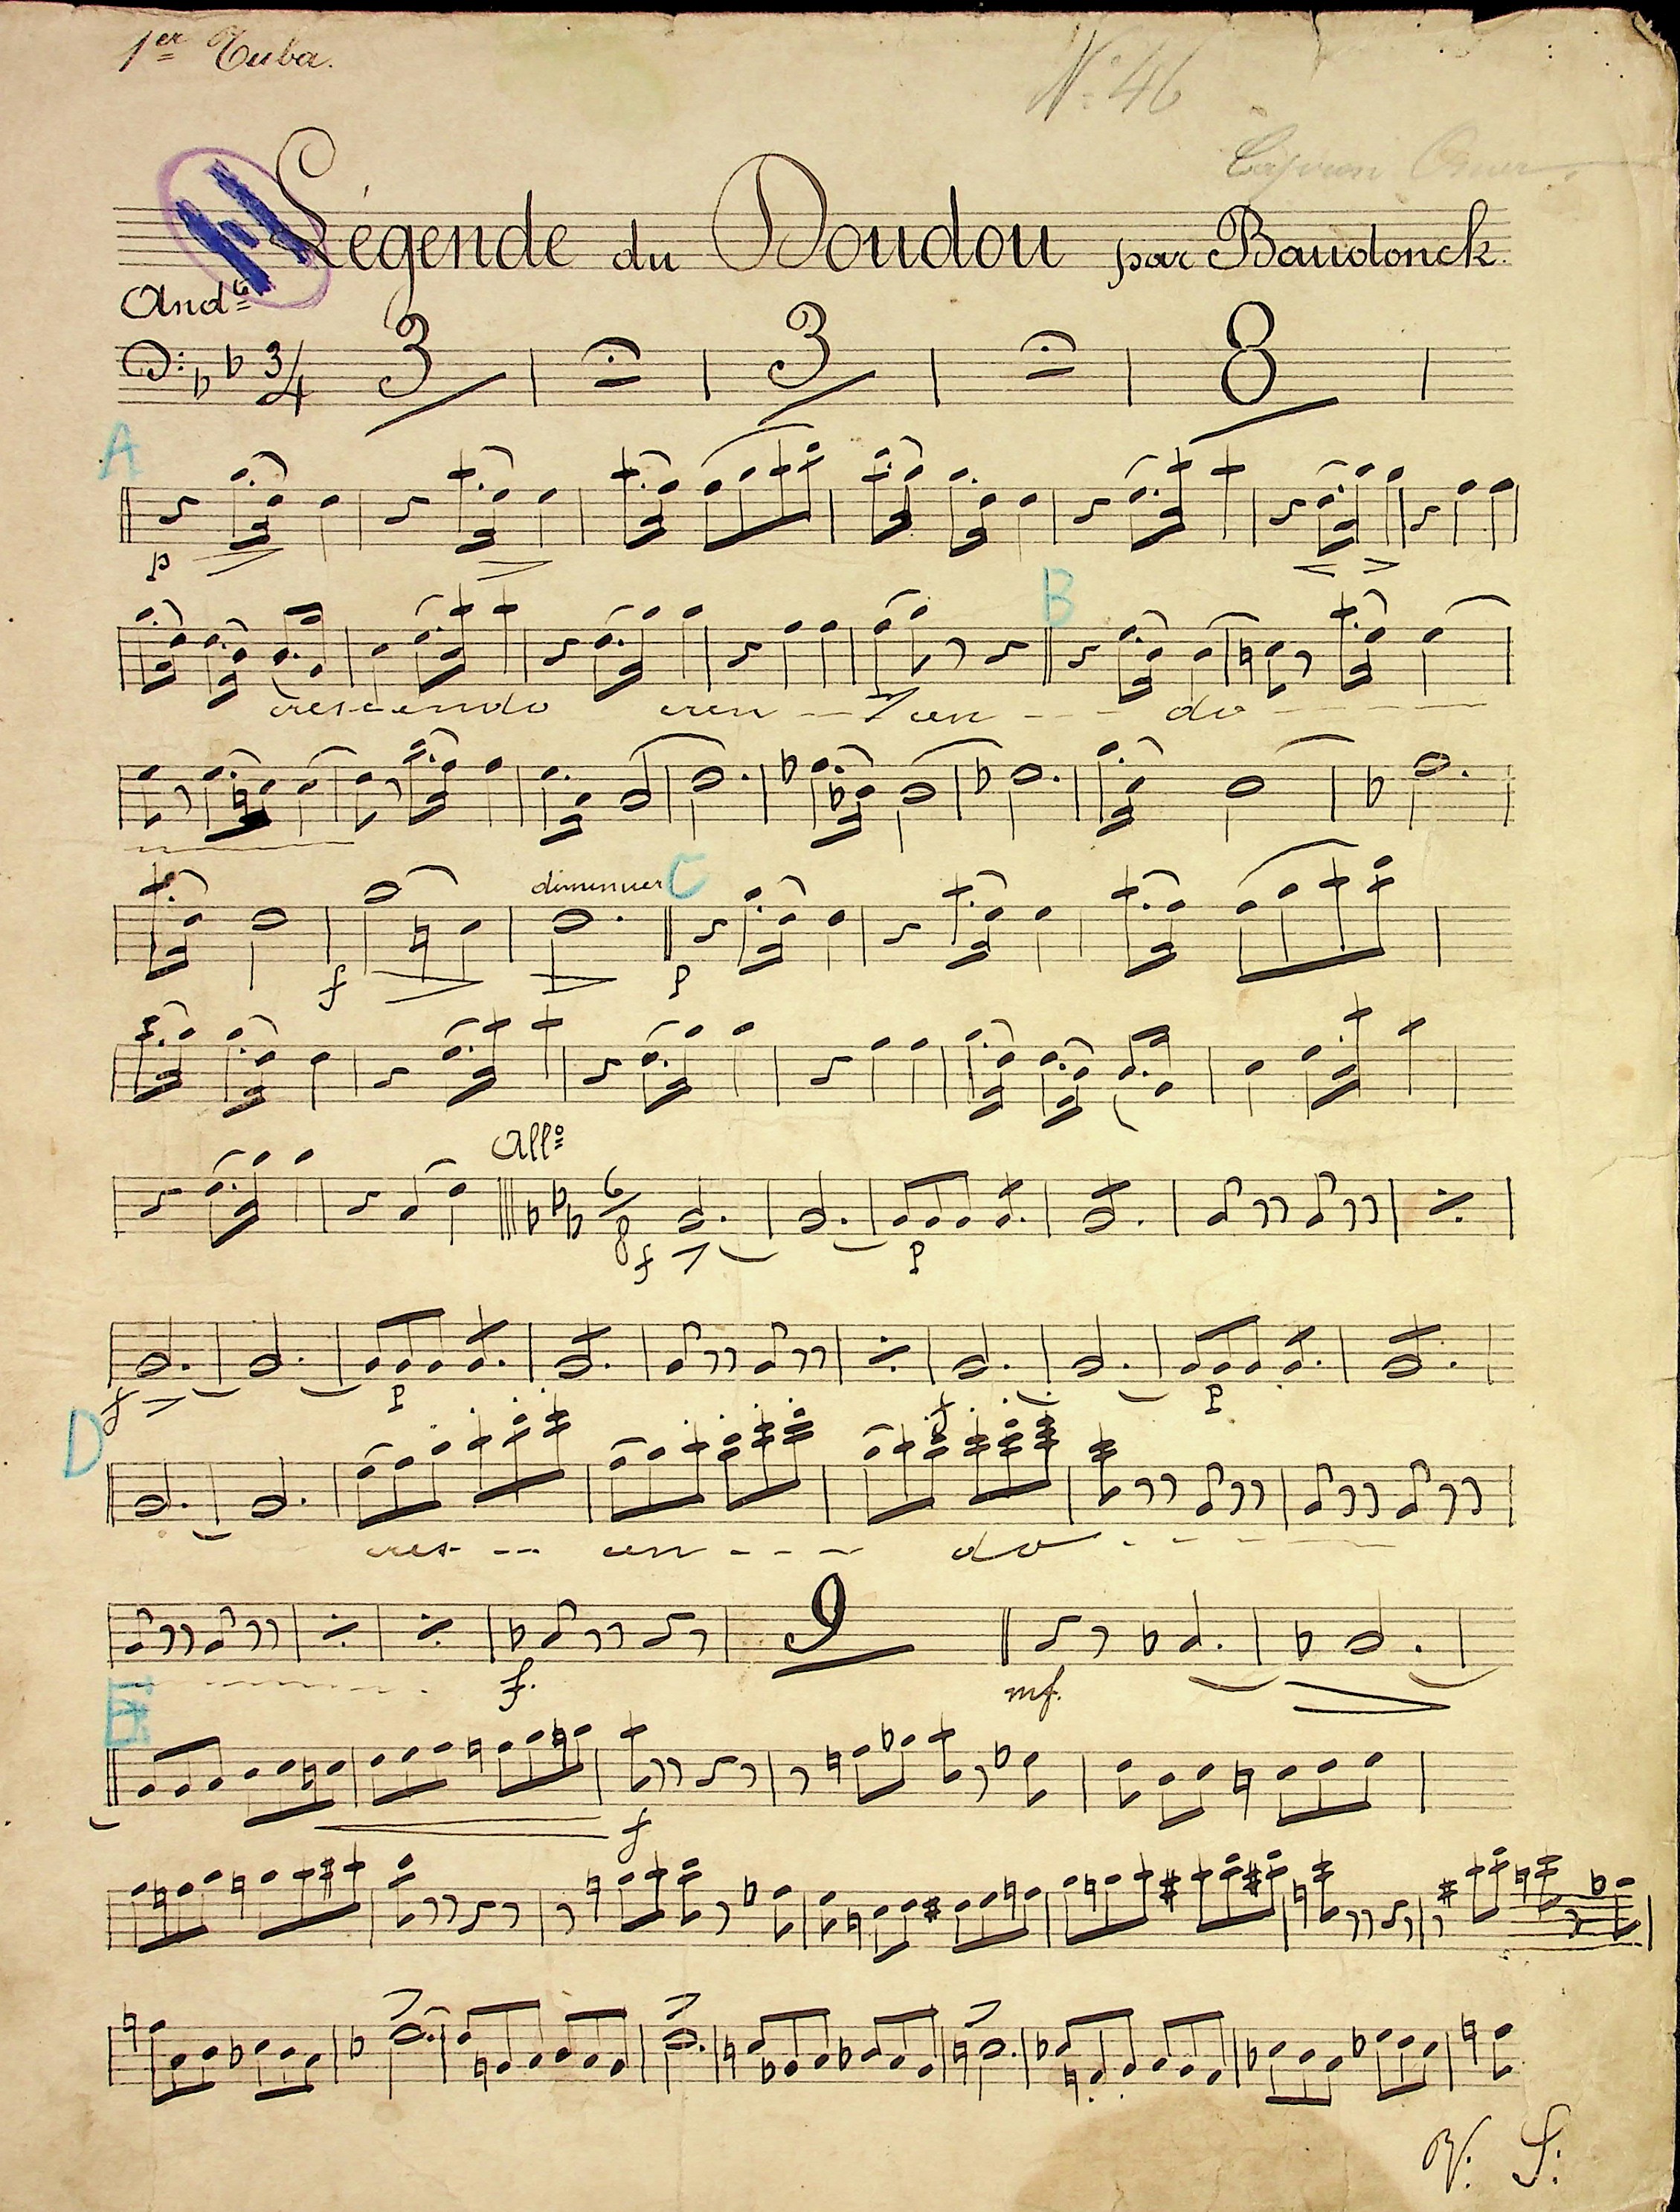 1er Tuba.
N° 46
Légende du Doudou par Baudonck.
Andte
3/4 3 3 8
A
p
B
crescendo cres - - cen - - - do - - -
diminuer C
f p
Allo
6/8
f p
f p f p
D
cres - - cen - - - do - - - -
9
f. mf.
E
f
V. S.